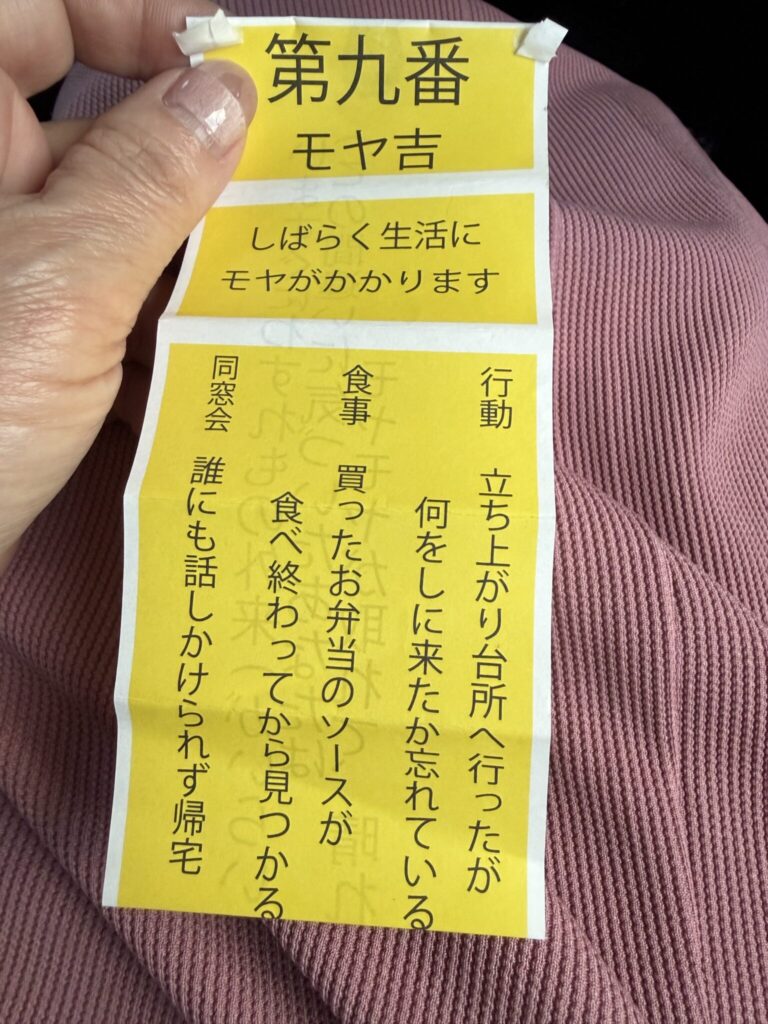 第九番
モヤ吉
しばらく生活に
モヤがかかります
行動 立ち上がり台所へ行ったが
何をしに来たか忘れている
食事 買ったお弁当のソースが
食べ終わってから見つかる
同窓会 誰にも話しかけられず帰宅